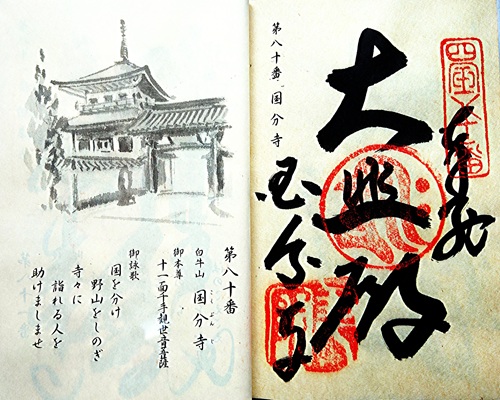 奉納
大悲殿
国分寺
第八十番 国分寺
第八十番
白牛山 国分寺
こくぶんじ
御本尊 十一面千手観世音菩薩
御詠歌
国を分け
野山をしのぎ
寺々に
詣れる人を
助けましませ